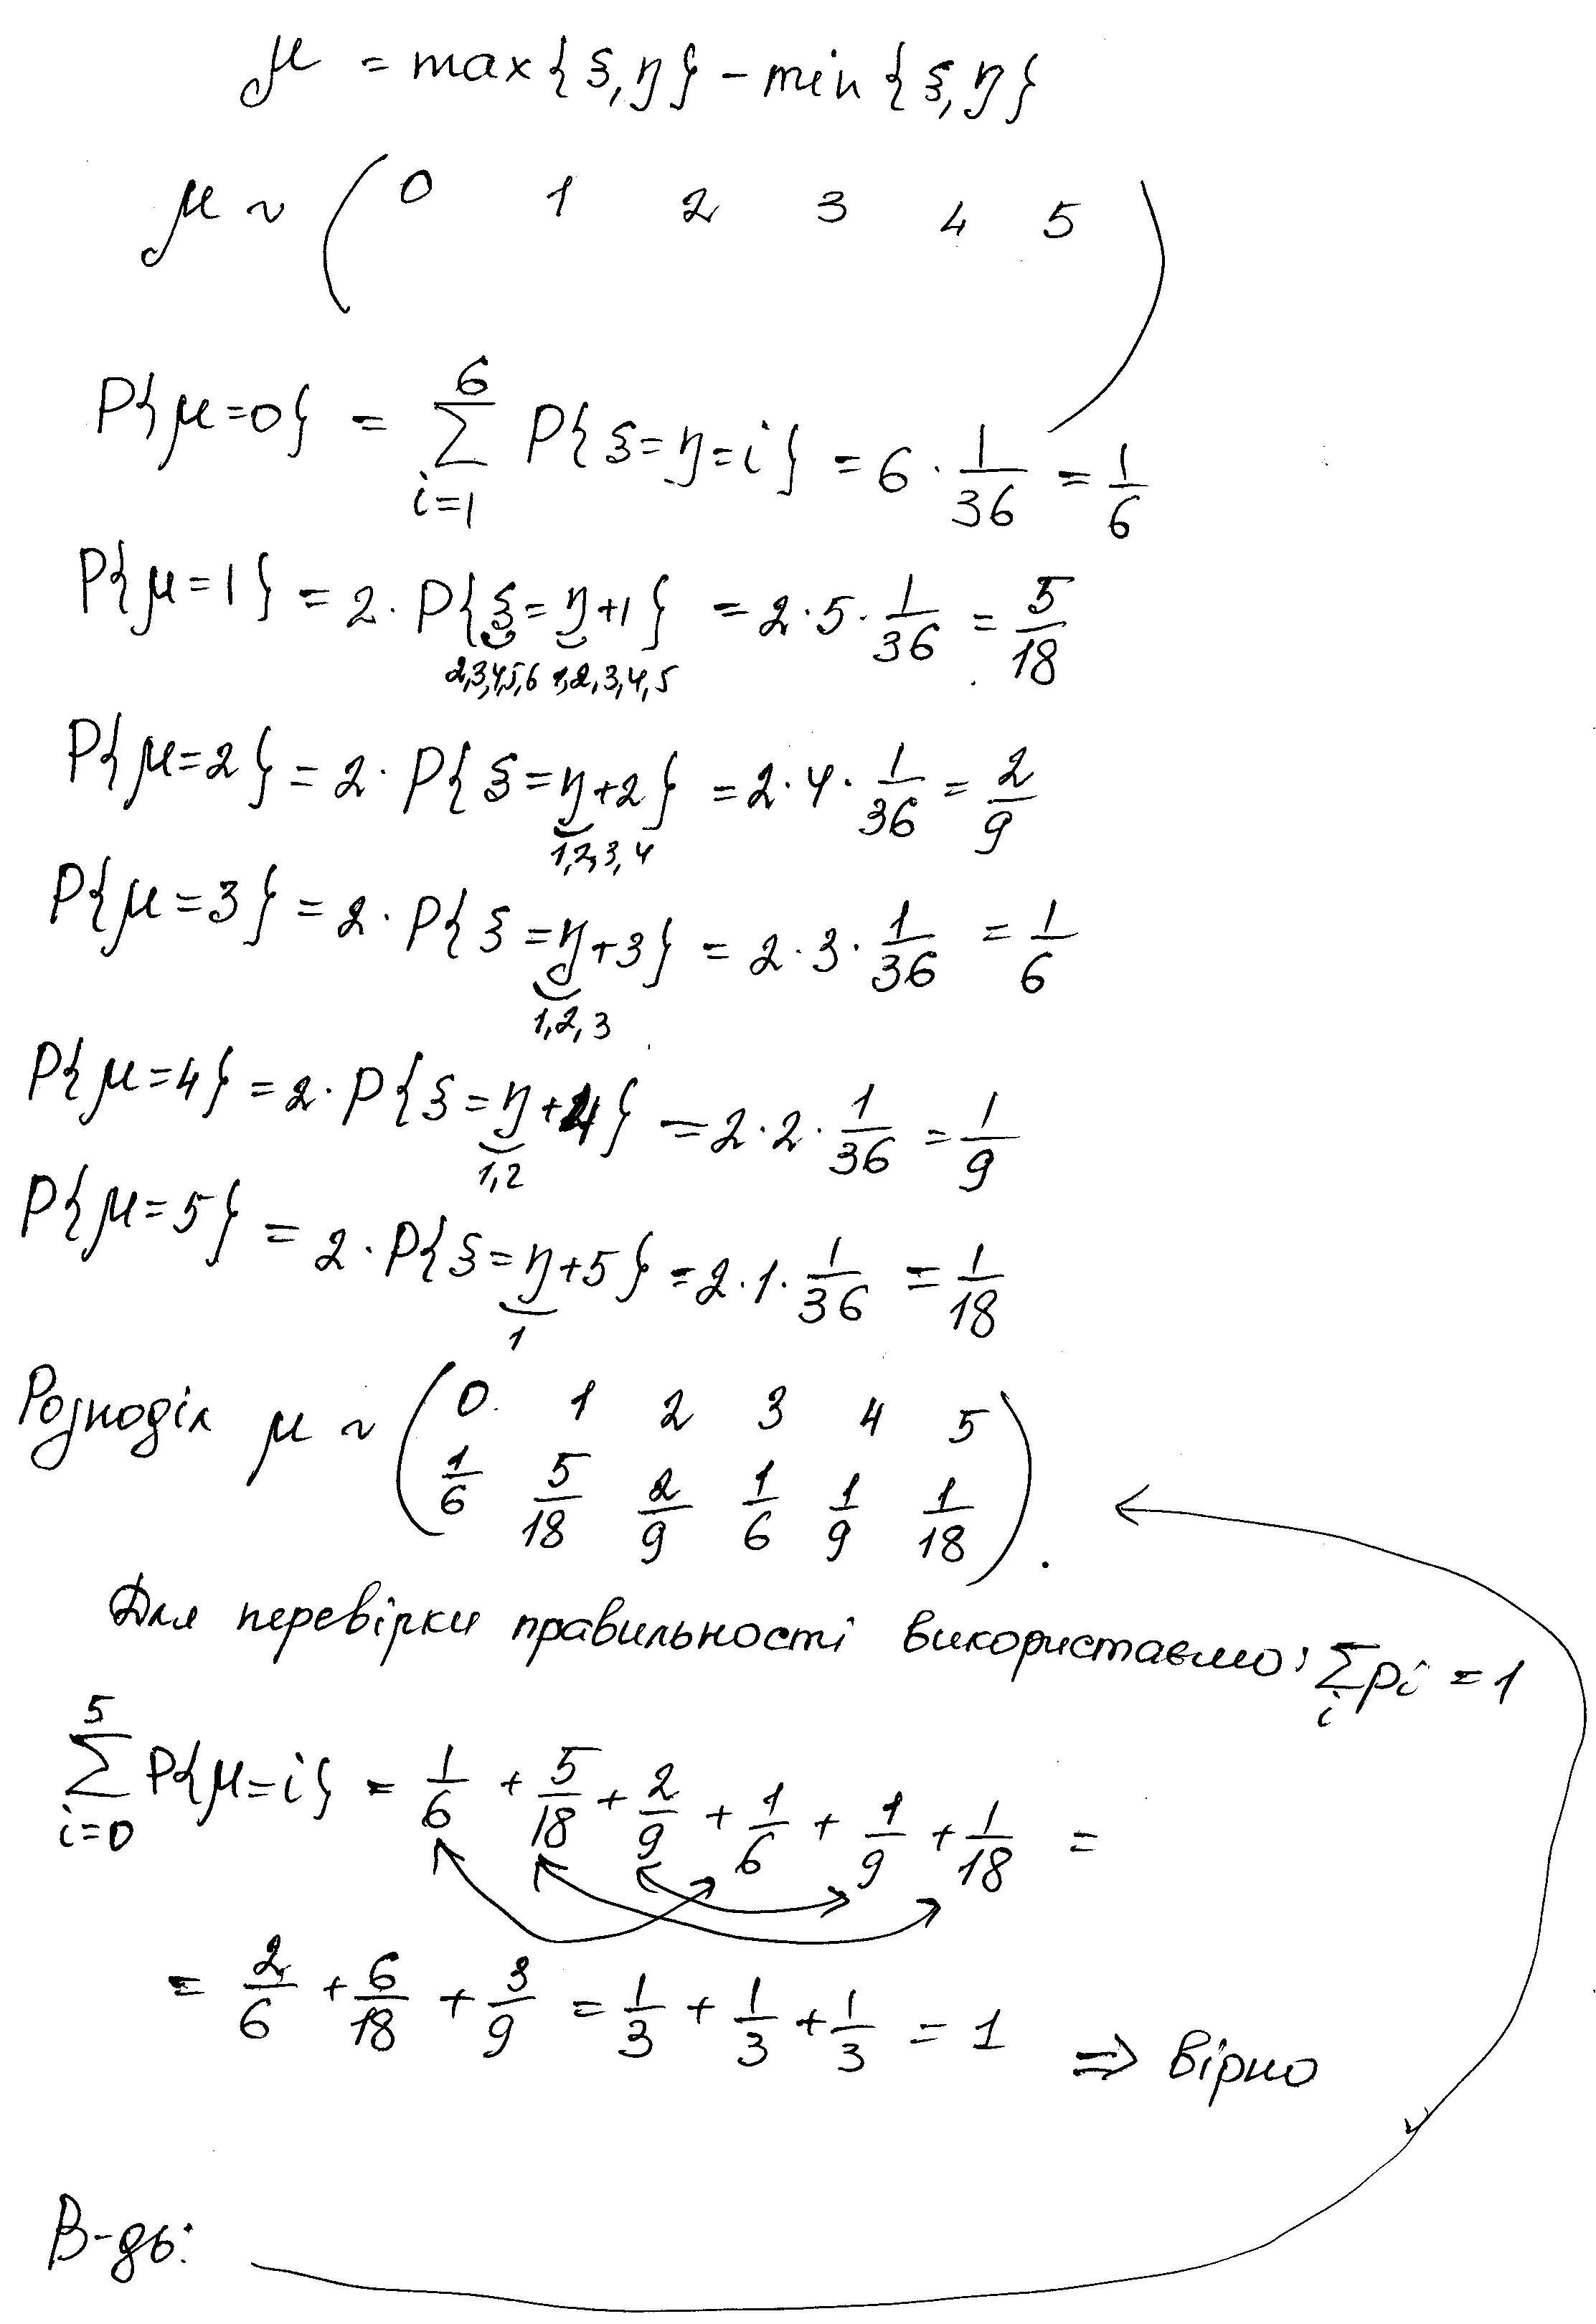 μ = max{ξ,η} - min{ξ,η}
μ ~ ( 0 1 2 3 4 5 )
P{μ=0} = ∑_{i=1}^{6} P{ξ=η=i} = 6 · 1/36 = 1/6
P{μ=1} = 2 · P{ξ=η+1} = 2·5·1/36 = 5/18
2,3,4,5,6 1,2,3,4,5
P{μ=2} = 2 · P{ξ=η+2} = 2·4·1/36 = 2/9
1,2,3,4
P{μ=3} = 2 · P{ξ=η+3} = 2·3·1/36 = 1/6
1,2,3
P{μ=4} = 2 · P{ξ=η+4} = 2·2·1/36 = 1/9
1,2
P{μ=5} = 2 · P{ξ=η+5} = 2·1·1/36 = 1/18
1
Розподіл μ ~ ( 0 1 2 3 4 5
1/6 5/18 2/9 1/6 1/9 1/18 ).
Для перевірки правильності використаємо: ∑_i pi = 1
∑_{i=0}^{5} P{μ=i} = 1/6 + 5/18 + 2/9 + 1/6 + 1/9 + 1/18 =
= 2/6 + 6/18 + 3/9 = 1/3 + 1/3 + 1/3 = 1 ⇒ вірно
В-дь: